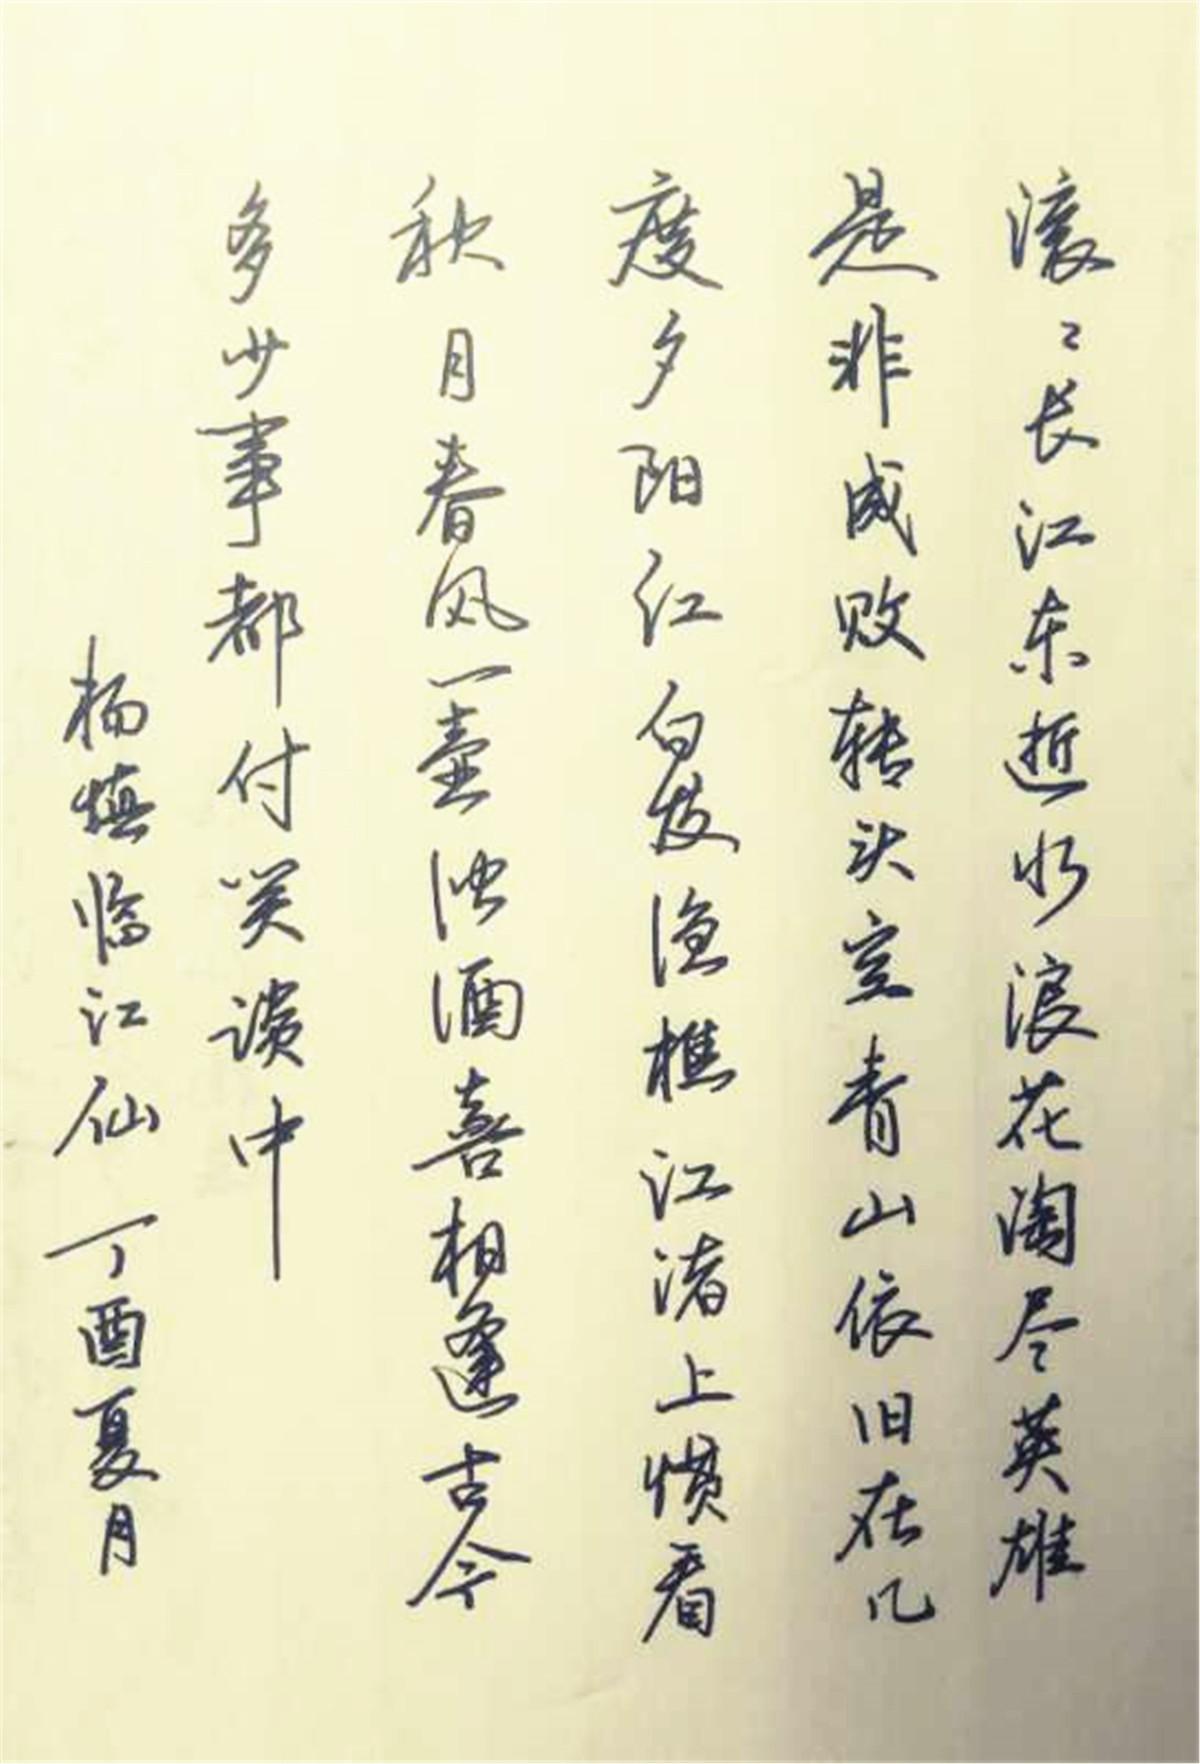 滚〻长江东逝水浪花淘尽英雄
是非成败转头空青山依旧在几
度夕阳红白发渔樵江渚上惯看
秋月春风一壶浊酒喜相逢古今
多少事都付笑谈中
杨慎临江仙 丁酉夏月